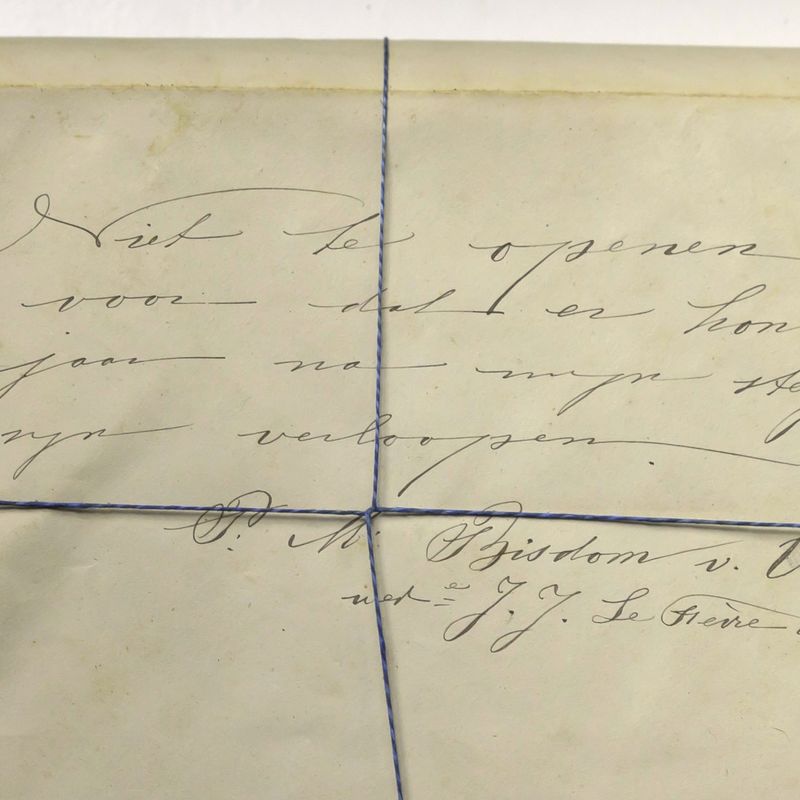 Niet te openen
voor dat er hon
jaar na mijn ste
zijn verloopen.
P. M. Bisdom v. V
wed.e J. J. Le Fèvre